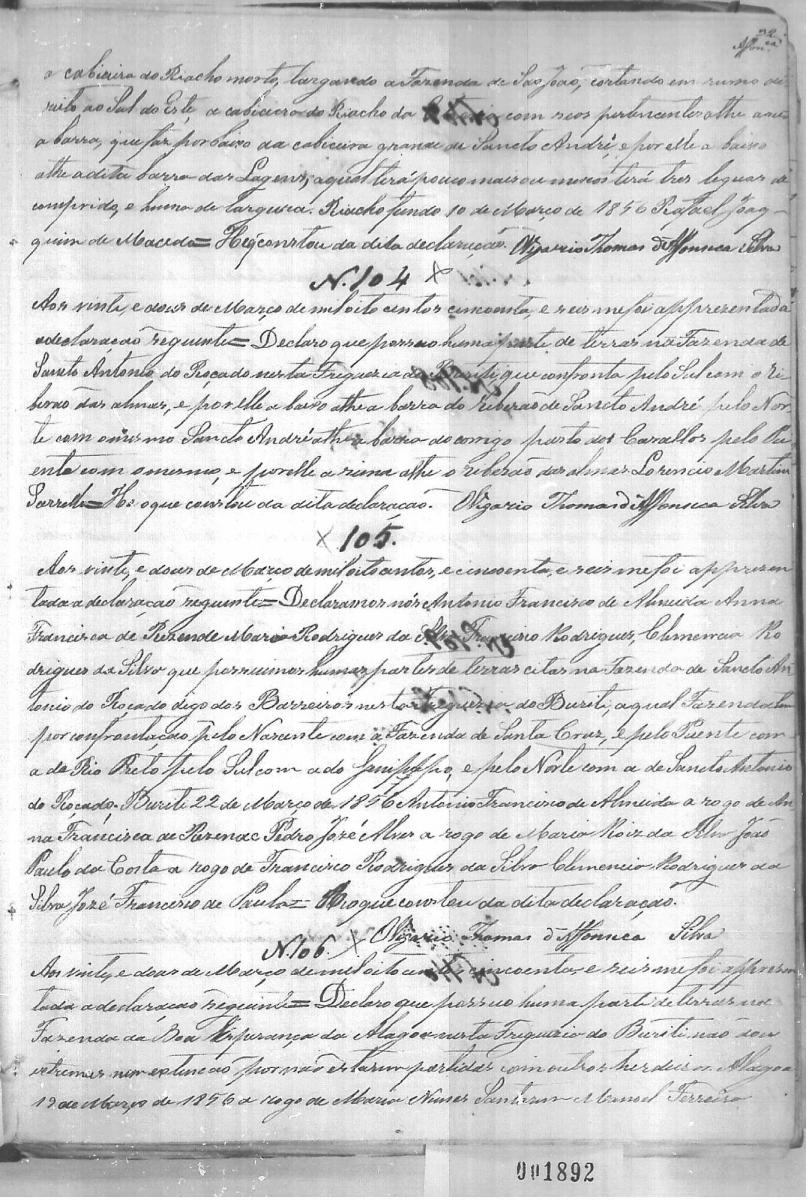 32
Affon.ca
a cabiceira do Riacho morto, largando a Fazenda de São João, cortando em rumo di
reito ao Sul do Este a cabiceira do Riacho da com seos pertencentes athe a
a barra, que faz por baixo da cabiceira grande de Sancto André, e por elle a baixo
athe a dita barra das Lagens, a qual terá pouco mais ou menos terá tres leguas de
comprido, e huma de largura. Riacho fundo 10 de Março de 1856 Rafael Joaq-
quim de Macedo= He o constou da dita declaração. Vigario Thomas d'Affonseca e Silva
N. 104 X
Aos vinte, e dous de Março de mil oito centos cincoenta, e seis me foi apprezentada
a declaração seguinte= Declaro que possuo huma parte de terras na Fazenda de
Sancto Antonio do Roçado nesta Freguezia do Buriti que confronta pelo Sul com o ri
beirão das almas, e por elle a baixo athe a barra do ribeirão de Sancto André pelo Nor
te com o mesmo Sancto André athe a barra do corrigo pasto dos Cavallos pelo Po
ente com o mesmo, e por elle a sima athe o ribeirão das almas Lorencio Martins
= He o que constou da dita declaração. Vigario Thomas d'Affonseca Silva
X 105.
Aos vinte, e dous de Março de mil oito centos, e cincoenta, e seis me foi apprezen
tada a declaração seguinte= Declaramos nós Antonio Francisco de Almeida Anna
Francisca de Rezende Maria Rodrigues da Silva Francisco Rodrigues Clemencia Ro
drigues da Silva que possuimos humas partes de terras citas na Fazenda de Sancto An
tonio do Roçado digo dos Barreiros nesta Freguezia do Buriti, a qual Fazenda tem
por confrontação pelo Nascente com a Fazenda de Santa Cruz, e pelo Puente com
a do Rio Preto pelo Sul com a do Genipapo, e pelo Norte com a de Sancto Antonio
do Roçado. Buriti 22 de Março de 1856 Antonio Francisco de Almeida a rogo de An
na Francisca de Rezende Pedro José Alves a rogo de Maria Roiz da Silva João
Paulo da Costa a rogo de Francisco Rodrigues da Silva Clemencia Rodrigues da
Silva José Francisco de Paula= He o que constou da dita declaração.
Vigario Thomas d'Affonseca Silva
N. 106. X
Aos vinte, e dous de Março de mil oito centos cincoenta, e seis me foi apprezen
tada a declaração seguinte= Declaro que possuo huma parte de terras na
Fazenda da Boa Esperança da Alagoa nesta Freguezia do Buriti, não dou
extremas nem extenção por não estarem partidas com outros herdeiros. Alagoa
12 de Março de 1856 a rogo de Maria Nunes Manoel Ferreira
001892